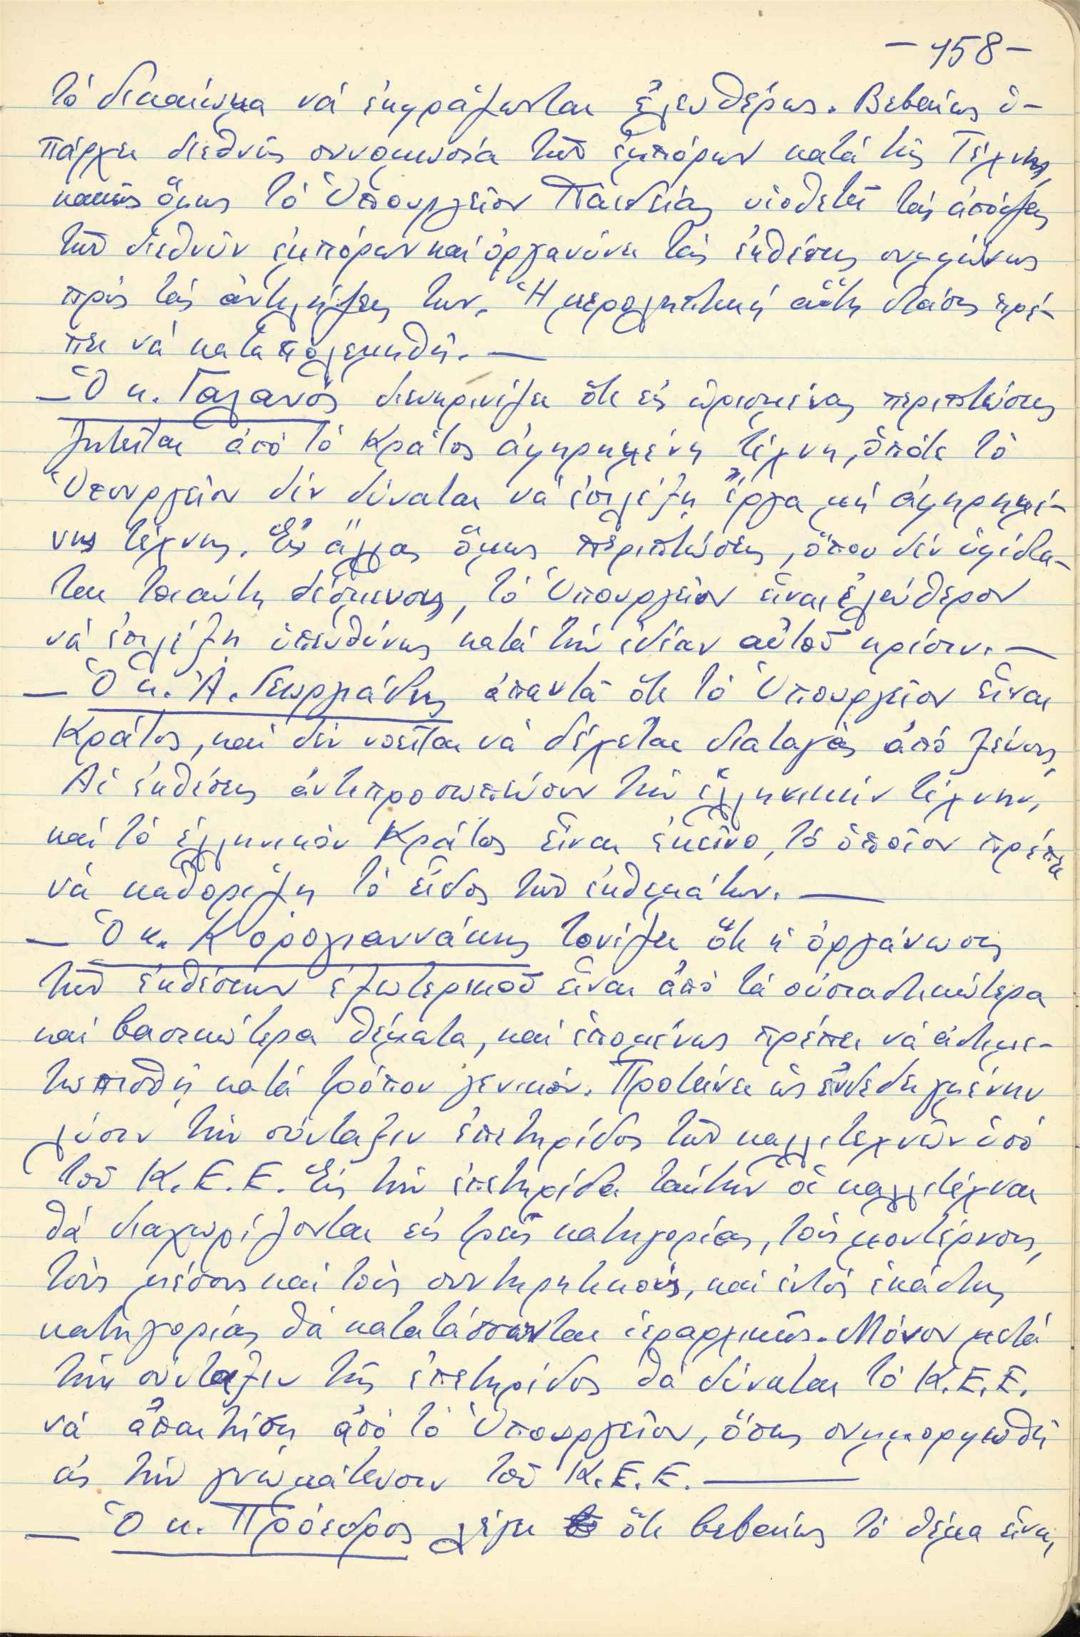 — 158 —
τό δικαίωμα νά ἐκφράζωνται ἐλευθέρως. Βεβαίως ὑ-
πάρχει διεθνής συνομωσία τῶν ἐμπόρων κατά τῆς Τέχνης,
κακῶς ὅμως τό Ὑπουργεῖον Παιδείας υἱοθετεῖ τάς ἀπόψεις
τῶν διεθνῶν ἐμπόρων καί ὀργανώνει τάς ἐκθέσεις συμφώνως
πρός τάς ἀντιλήψεις των. Ἡ μεροληπτική αὕτη στάσις πρέ-
πει νά καταπολεμηθῆ. —
— Ὁ κ. Γαλανός διευκρινίζει ὅτι εἰς ὡρισμένας περιπτώσεις
ζητεῖται ἀπό τό Κράτος ἀφηρημένη τέχνη, ὁπότε τό
Ὑπουργεῖον δέν δύναται νά ἐπιλέξη ἔργα μή ἀφηρημέ-
νης τέχνης. Εἰς ἄλλας ὅμως περιπτώσεις, ὅπου δέν ὑφίστα-
ται τοιαύτη δέσμευσις, τό Ὑπουργεῖον εἶναι ἐλεύθερον
νά ἐπιλέξη ὑπευθύνως κατά τήν ἰδίαν αὐτοῦ κρίσιν. —
— Ὁ κ. Ἀ. Γεωργιάδης ἀπαντᾶ ὅτι τό Ὑπουργεῖον εἶναι
Κράτος, καί δέν νοεῖται νά δέχεται διαταγάς ἀπό ξένους,
Αἱ ἐκθέσεις ἀντιπροσωπεύουν τήν ἑλληνικήν τέχνην,
καί τό ἑλληνικόν Κράτος εἶναι ἐκεῖνο, τό ὁποῖον πρέπει
νά καθορίζη τό εἶδος τῶν ἐκθεμάτων. —
— Ὁ κ. Κορογιαννάκης τονίζει ὅτι ἡ ὀργάνωσις
τῶν ἐκθέσεων ἐξωτερικοῦ εἶναι ἀπό τά οὐσιαστικώτερα
καί βασικώτερα θέματα, καί ἑπομένως πρέπει νά ἀντιμε-
τωπισθῆ κατά τρόπον γενικόν. Προτείνει ὡς ἐνδεδειγμένην
λύσιν τήν σύνταξιν ἐπετηρίδος τῶν καλλιτεχνῶν ὑπό
τοῦ Κ.Ε.Ε. Εἰς τήν ἐπετηρίδα ταύτην οἱ καλλιτέχναι
θά διαχωρίζονται εἰς τρεῖς κατηγορίας, τούς μοντέρνους,
τούς μέσους καί τούς συντηρητικούς, καί ἐντός ἑκάστης
κατηγορίας θά κατατάσσωνται ἱεραρχικῶς. Μόνον μετά
τήν σύνταξιν τῆς ἐπετηρίδος θά δύναται τό Κ.Ε.Ε.
νά ἀπαιτήση ἀπό τό Ὑπουργεῖον, ὅπως συμμορφωθῆ
εἰς τήν γνωμάτευσιν τοῦ Κ.Ε.Ε. —
— Ὁ κ. Πρόεδρος λέγει ὅτι βεβαίως τό θέμα εἶναι